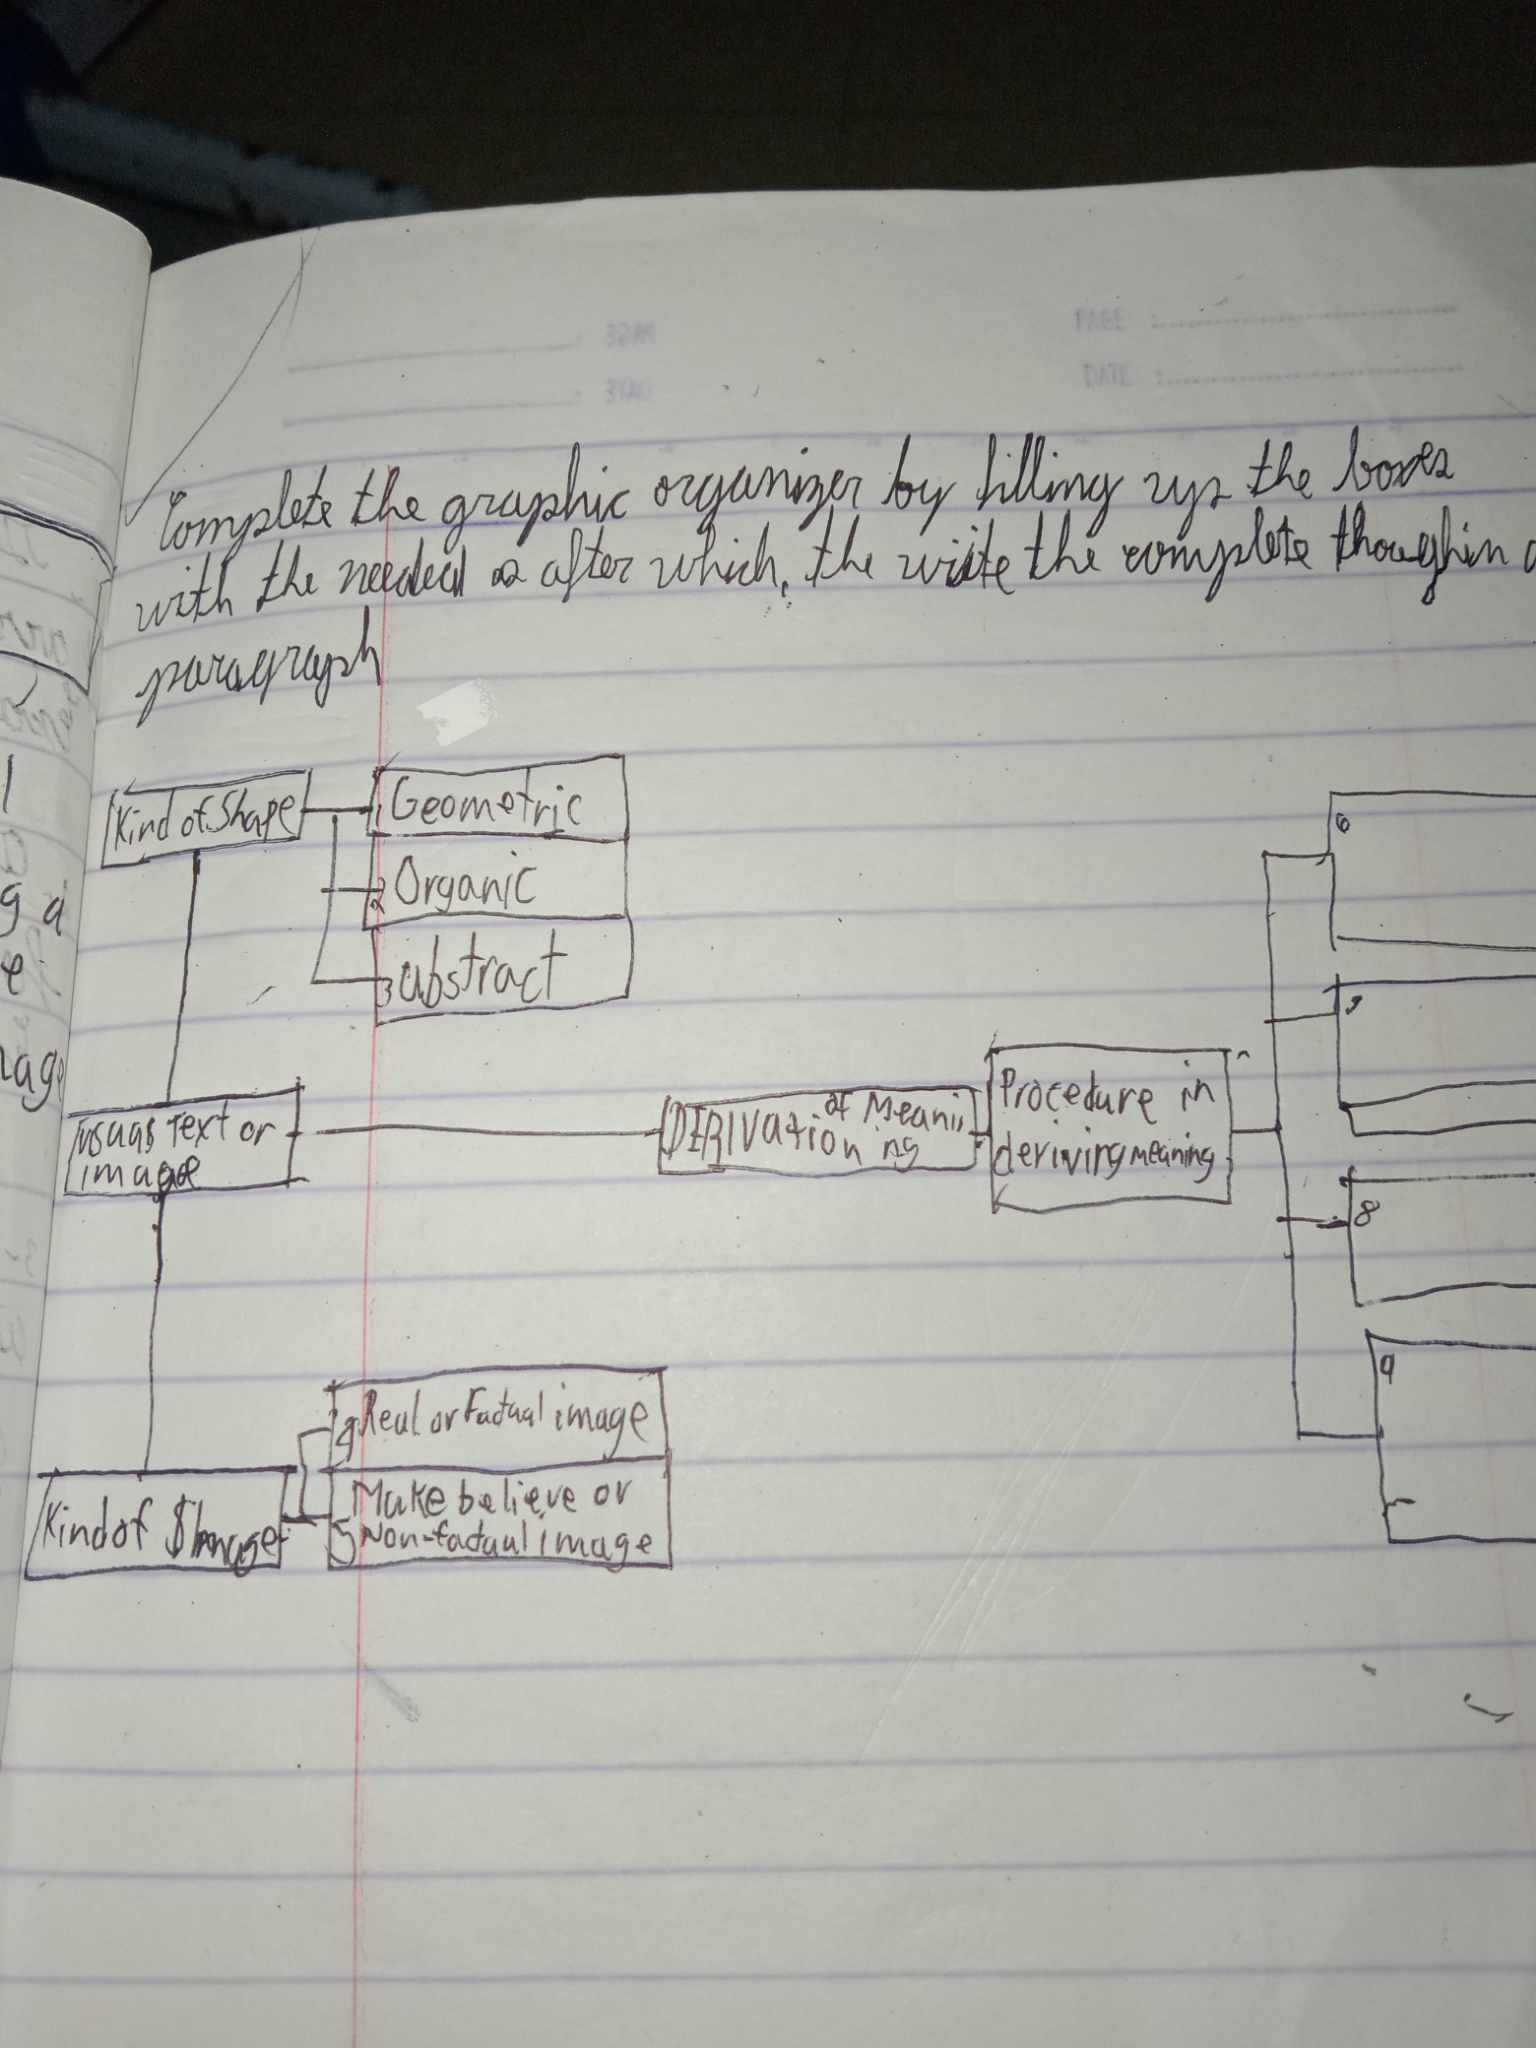 Complete the graphic organizer by filling up the boxes
with the needed as after which, the write the complete though in a
paragraph
Kind of Shape
1 Geometric
2 Organic
3 abstract
Text or
image
DERIVation of Meaning
Procedure in
deriving meaning
6
7
8
9
Kind of Image
4 Real or Factual image
5 Make believe or
Non-factual image
PAGE
DATE
PAGE :
DATE :